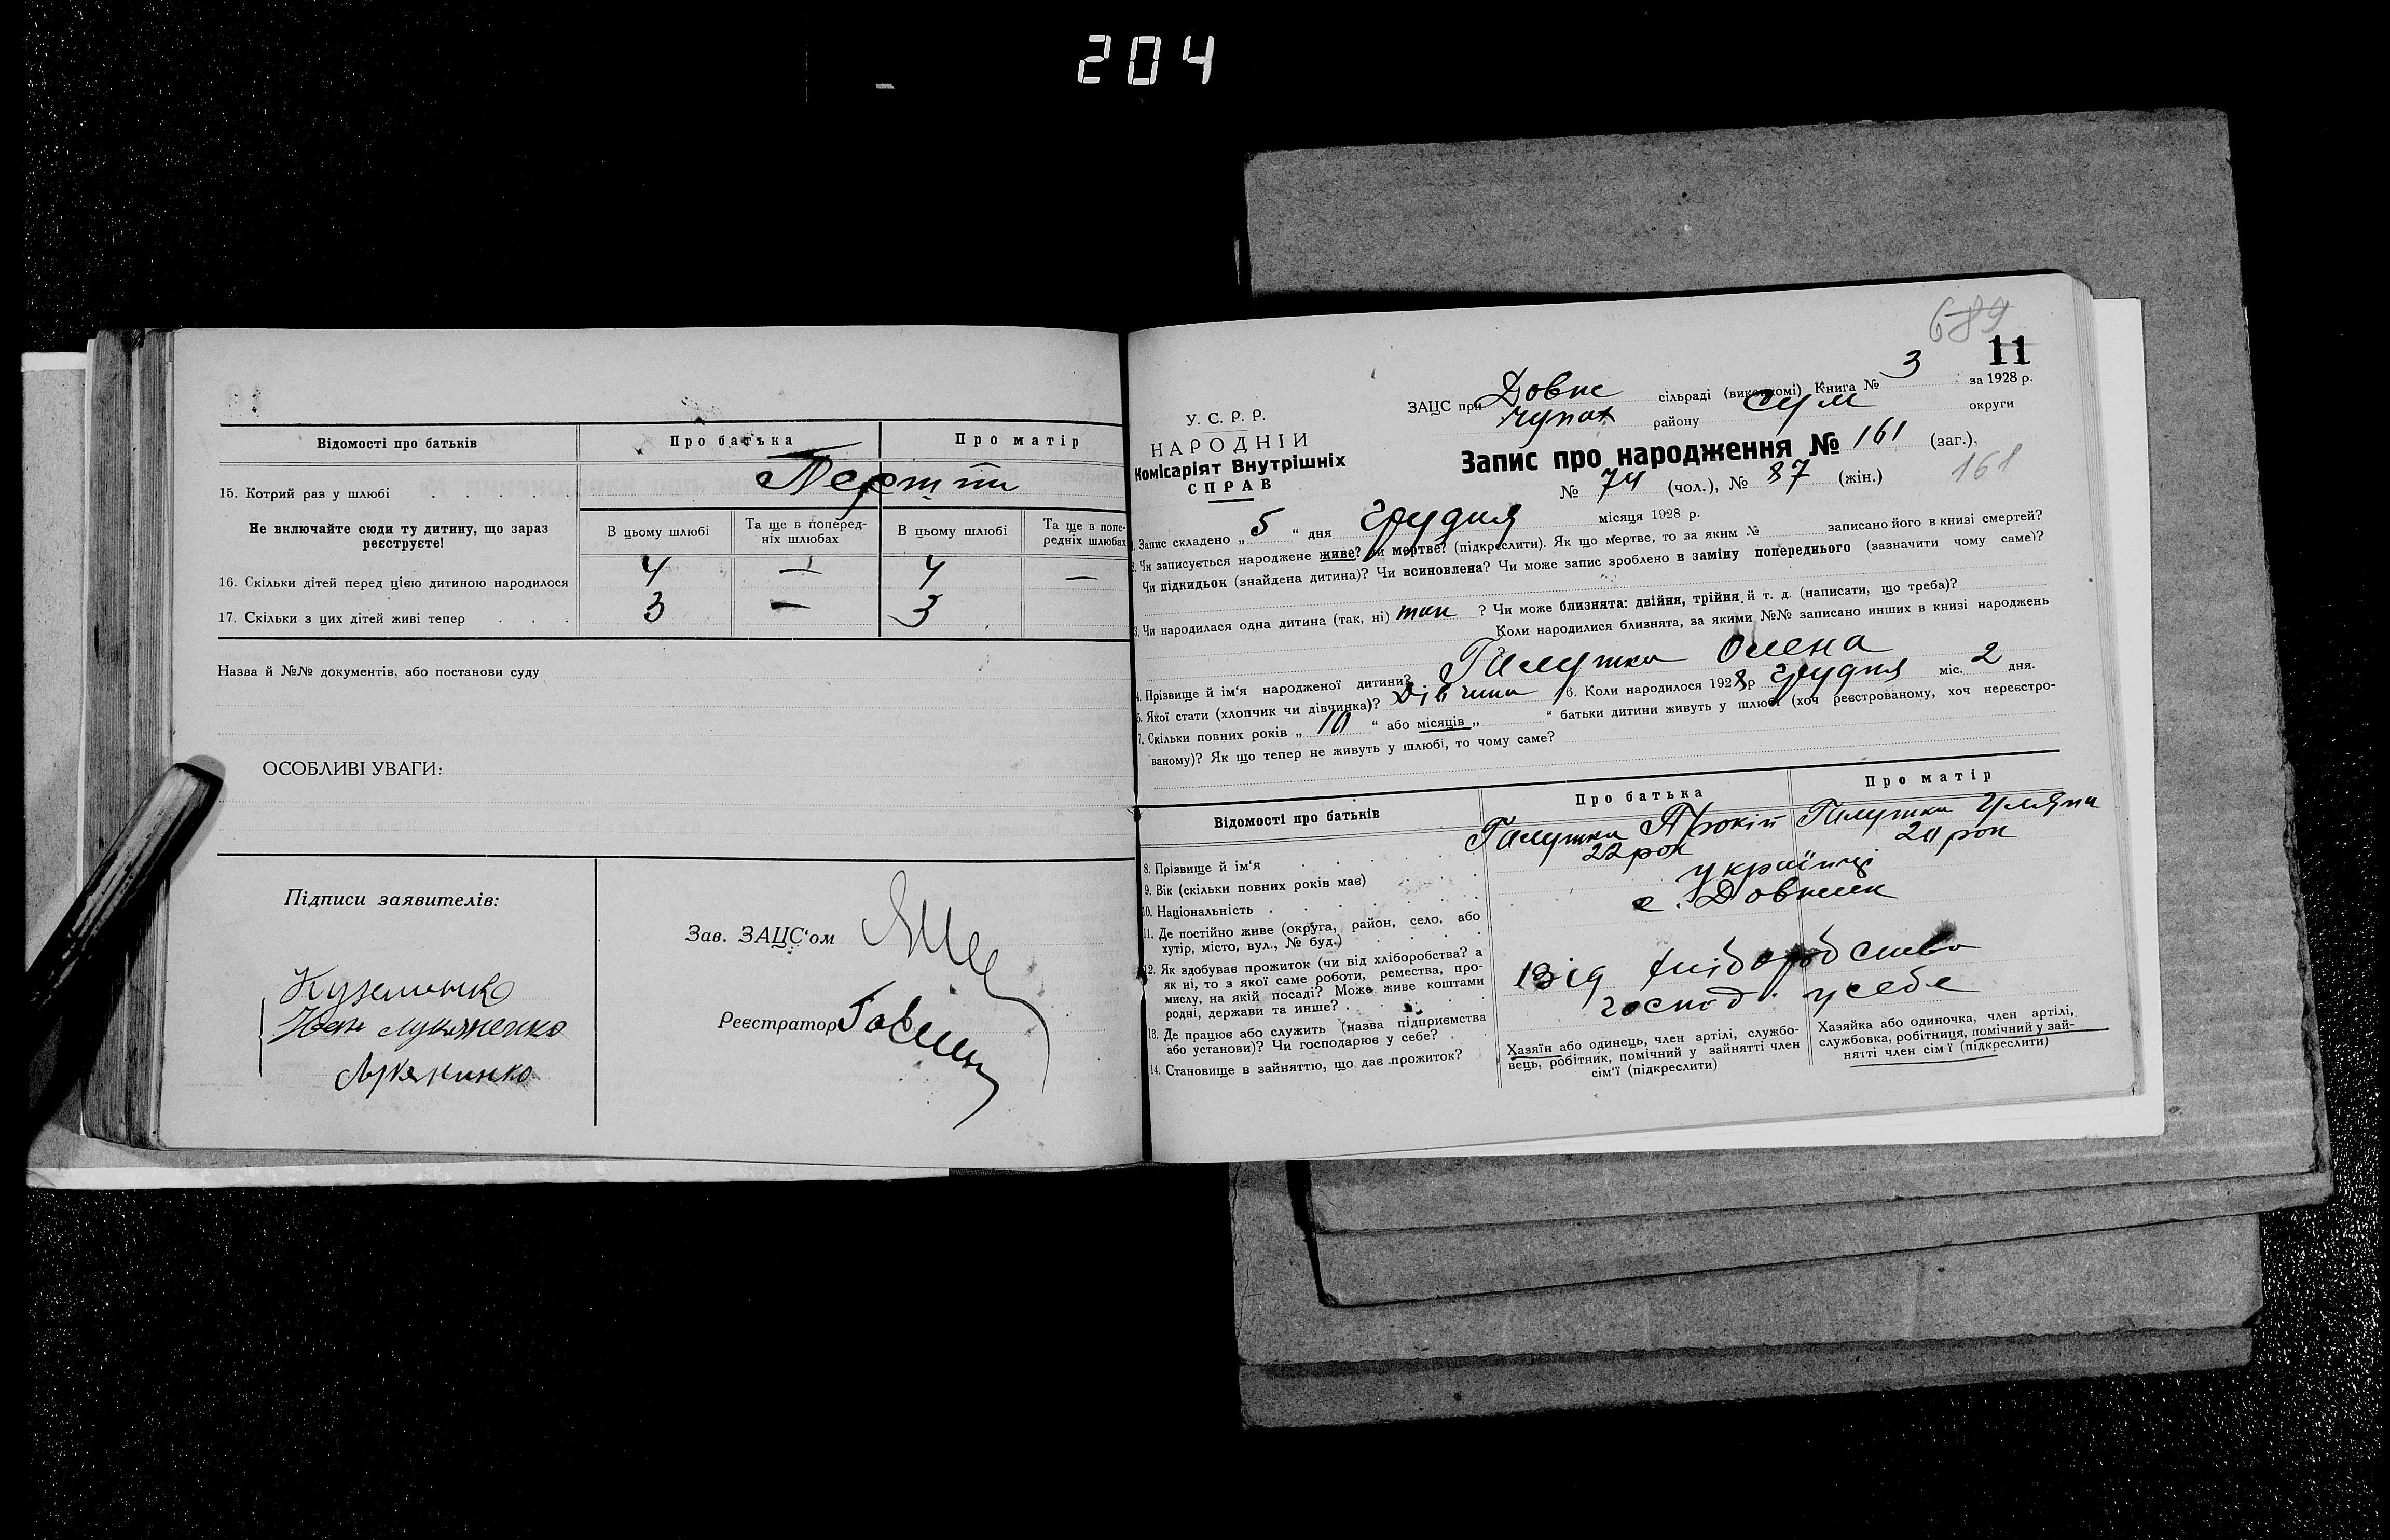 204
Відомості про батьків
Про батька
Про матір
15. Котрий раз у шлюбі
Перший
Не включайте сюди ту дитину, що зараз реєструєте!
В цьому шлюбі
Та ще в попередніх шлюбах
В цьому шлюбі
Та ще в попередніх шлюбах
16. Скільки дітей перед цією дитиною народилося 4 — 4 —
17. Скільки з цих дітей живі тепер 3 — 3
Назва й №№ документів, або постанови суду
ОСОБЛИВІ УВАГИ:
Підписи заявителів:
Зав. ЗАЦС'ом
Реєстратор
689
11
У. С. Р. Р.
НАРОДНІЙ
Комісаріят Внутрішніх
СПРАВ
ЗАЦС при Довж сільраді (виконкомі) Книга № 3 за 1928 р.
Чупах району Сум округи
Запис про народження № 161 (заг.),
№ 74 (чол.), № 87 (жін.)
161
1. Запис складено „ 5 “ дня грудня місяця 1928 р.
2. Чи записується народжене живе? чи мертве? (підкреслити). Як що мертве, то за яким № записано його в книзі смертей?
Чи підкидьок (знайдена дитина)? Чи всиновлена? Чи може запис зроблено в заміну попереднього (зазначити чому саме)?
3. Чи народилася одна дитина (так, ні) так ? Чи може близнята: двійня, трійня й т. д. (написати, що треба)?
Коли народилися близнята, за якими №№ записано инших в книзі народжень
4. Прізвище й ім'я народженої дитини? Галушка Олена
5. Якої стати (хлопчик чи дівчинка)? Дівчина 6. Коли народилося 1928 р грудня міс. 2 дня.
7. Скільки повних років „ 10 “ або місяців „ “ батьки дитини живуть у шлюбі (хоч реєстрованому, хоч нереєстрованому)? Як що тепер не живуть у шлюбі, то чому саме?
Відомості про батьків
Про батька
Про матір
8. Прізвище й ім'я
Галушка Прокіп
Галушка
9. Вік (скільки повних років має)
22 рок
20 рок
10. Національність
українці
11. Де постійно живе (округа, район, село, або хутір, місто, вул., № буд.)
с. Довжик
12. Як здобуває прожиток (чи від хліборобства? а як ні, то з якої саме роботи, ремества, промислу, на якій посаді? Може живе коштами родні, держави та инше?
Від хліборобства
13. Де працює або служить (назва підприємства або установи)? Чи господарює у себе?
господ. у себе
14. Становище в зайняттю, що дає прожиток?
Хазяїн або одинець, член артілі, службовець, робітник, помічний у зайнятті член сім'ї (підкреслити)
Хазяйка або одиночка, член артілі, службовка, робітниця, помічний у зайнятті член сім'ї (підкреслити)